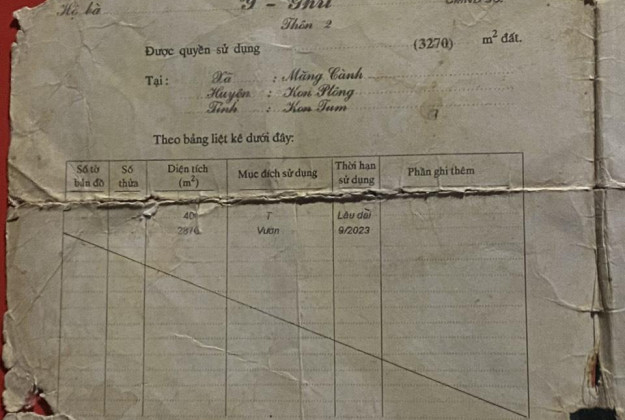 Hộ bà Y - Thu
Thôn 2
Được quyền sử dụng (3270) m² đất.
Tại: Xã : Măng Cành
Huyện : Kon Plông
Tỉnh : Kon Tum
Theo bảng liệt kê dưới đây:
Số tờ bản đồ Số thửa Diện tích (m²) Mục đích sử dụng Thời hạn sử dụng Phần ghi thêm
T Lâu dài
Vườn 9/2023